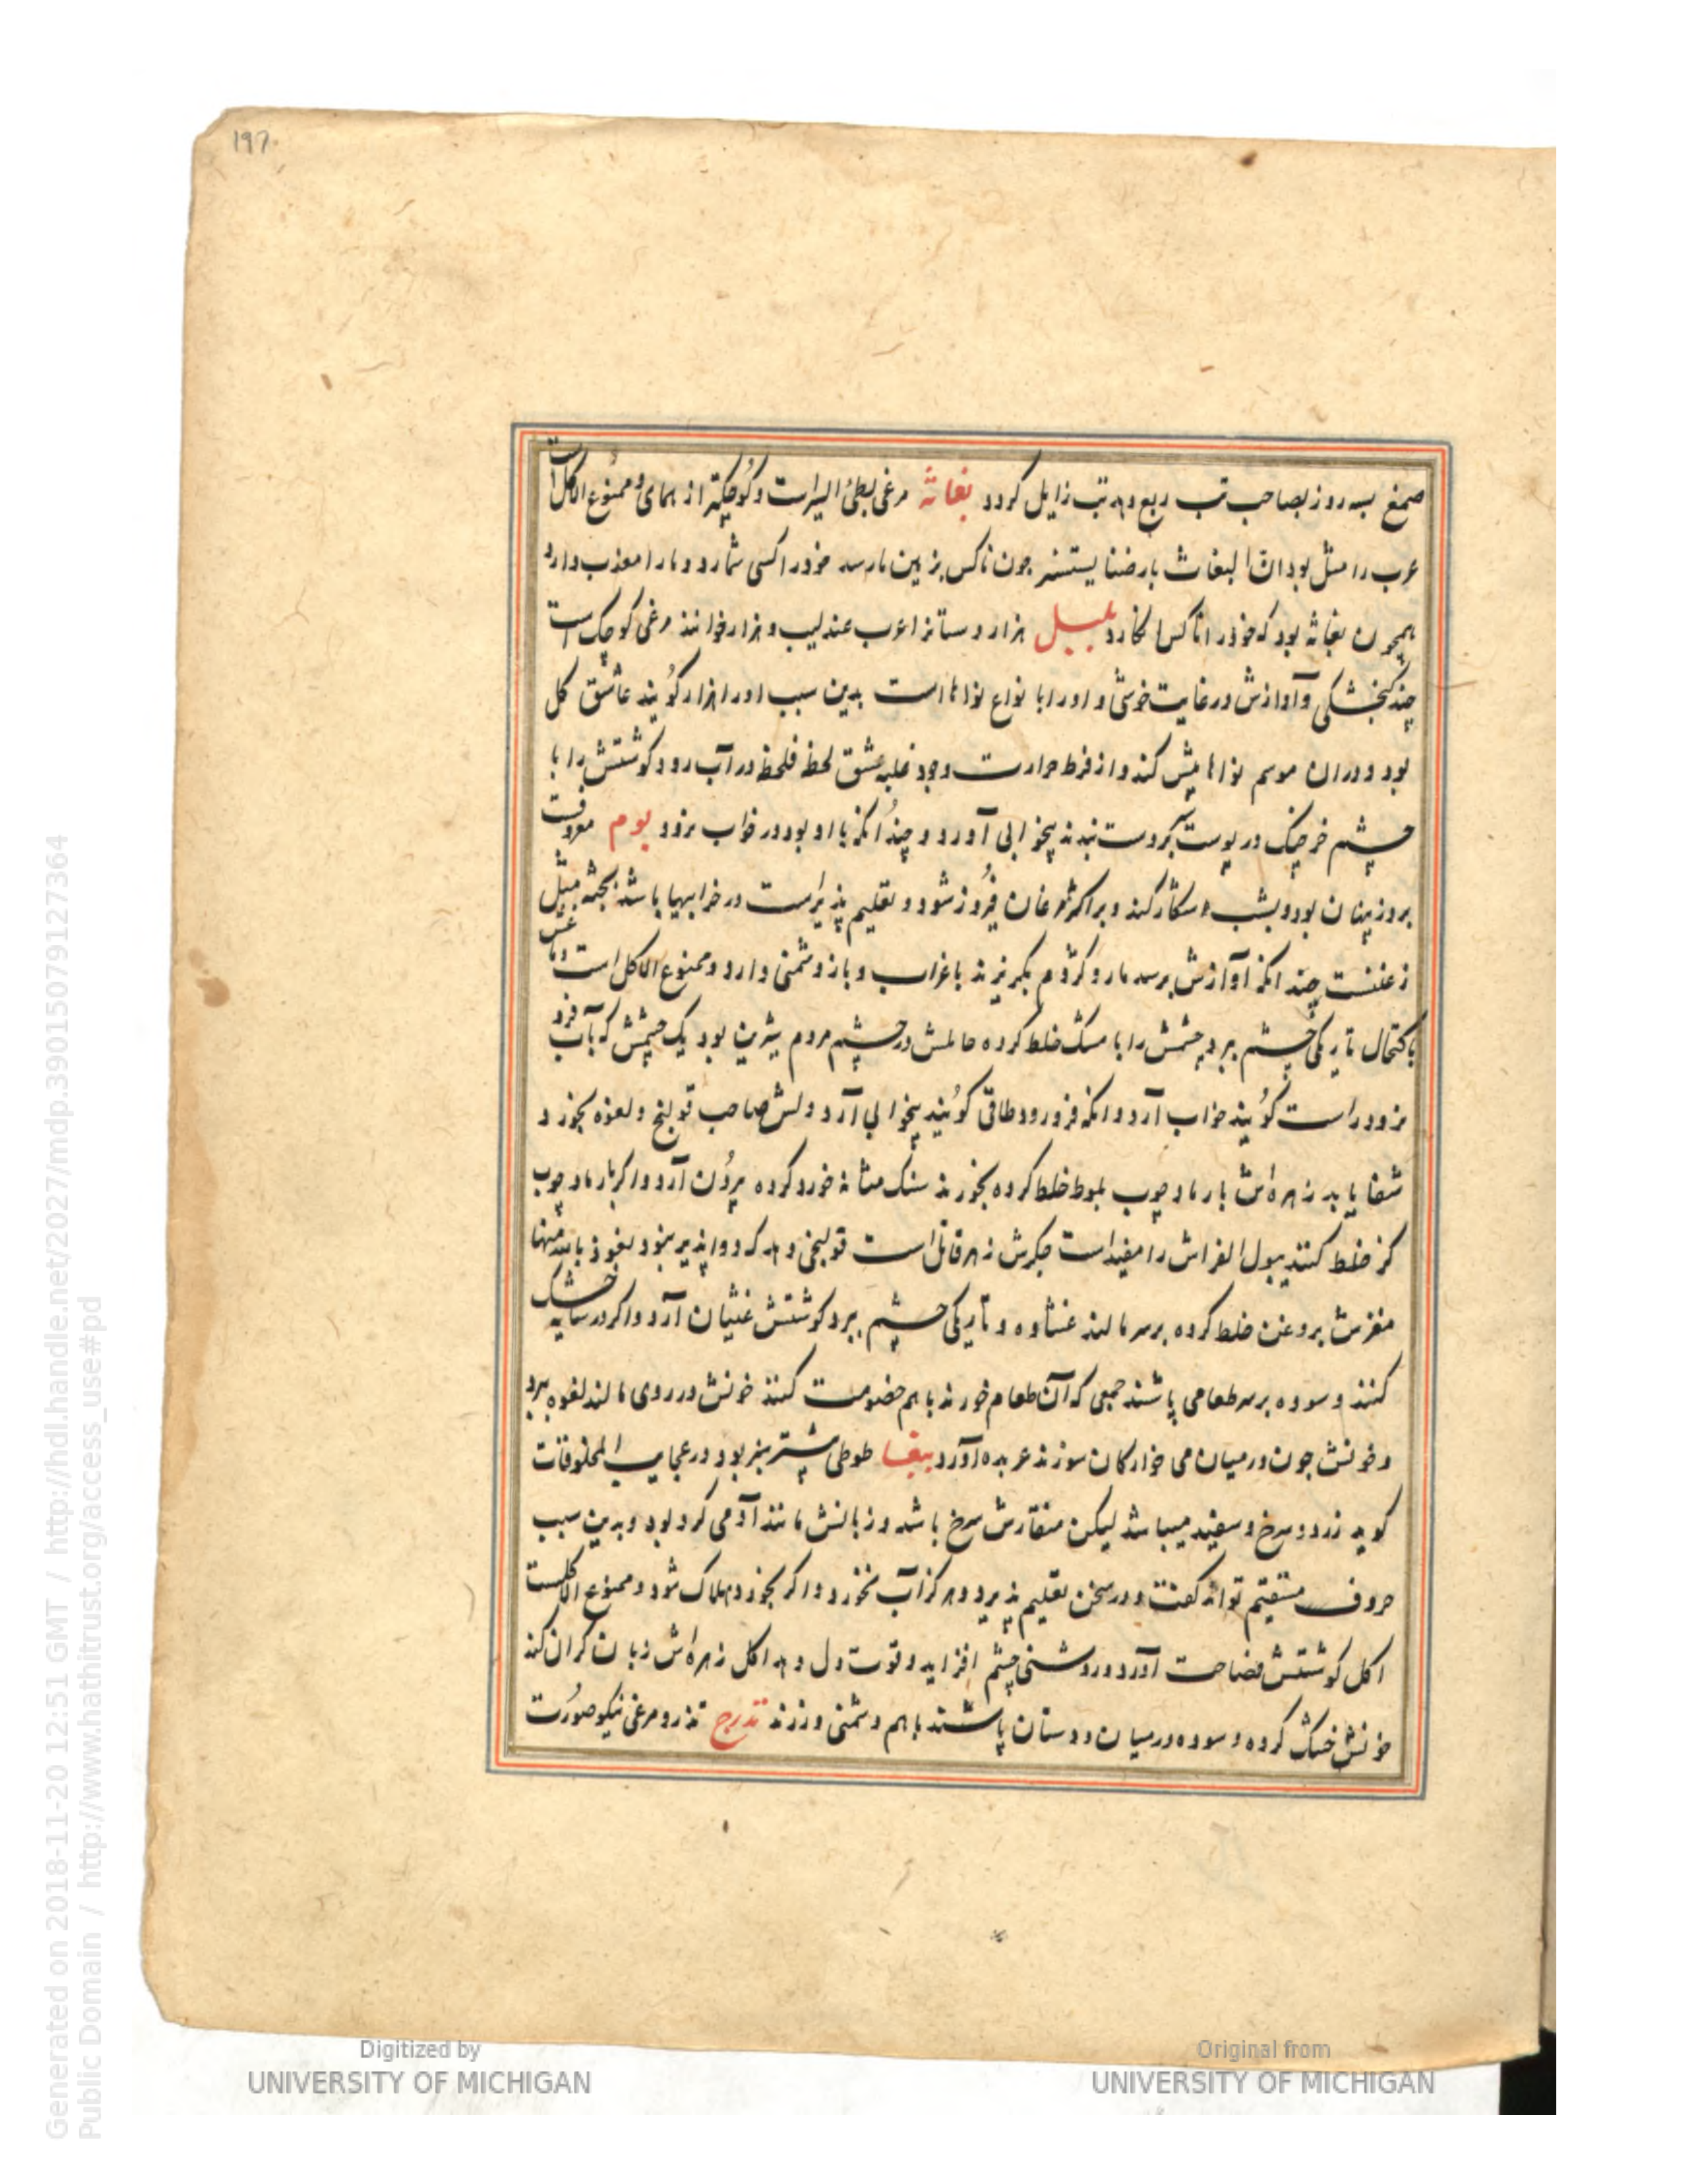 197
صمغ بسه روز بصاحب تب ربع دهد تب زایل کردد بغاثه مرغی بطئ السیر است و کوچکتر از همای و ممنوع الاکل است
عرب را مثل بود ان البغاث بارضنا یستنسر جون ناکس بزمین ما رسد خود را کسی شمارد و ما را معذب دارد
همچون بغاثه بود که خود را ناکس انکارد بلبل هزار دستانرا عرب عندلیب و هزار خوانند مرغی کوچک است
چند کنجشکی و آوازش در غایت خوشی و اورا با نواع نواهاست بدین سبب اورا هزار کویند عاشق کل
بود و دران موسم نواها بیش کند و از فرط حرارت وجود غلبه عشق لحظه فلحظه در آب رود کوشتش را با
چشم خرچنک در پوست کرده بندند بیخوابی آورد و چندانکه با او بود در خواب نرود بوم معروفست
بروز پنهان بود و بشب شکار کند و بر اکثر مرغان فیروز شود و تعلیم پذیر است در خرابیها باشد بجثه مثل
زغنست چند انکه آوازش برسد مار و کژدم بکریزند با غراب و باز دشمنی دارد و ممنوع الاکل است
باکتحال تاریکی چشم ببرد چشمش را با مسک خلط کرده حاملش در چشم مردم شیرین بود یک چشمش که بآب فرو
نرود راست کویند خواب آرد و انکه فرو رود طاقی کویند بیخوابی آرد دلش صاحب قولنج و لقوه بخورد
شفا یابد زهره اش با رماد چوب بلوط خلط کرده بخورند سنک مثانه خورد کرده بیرون آرد و اکر با رماد چوب
کز خلط کنند ببول الفراش را مفیداست جکرش زهر قاتل است قولنجی دهد که دوا پذیر نبود نعوذ بالله منها
مغزش بروغن خلط کرده برسر مالند غشاوه و تاریکی چشم ببرد کوشتش غثیان آرد و اکر در سایه خشک
کنند و سوده برسر طعامی پاشند جمعی که آن طعام خورند با هم خصومت کنند خونش در روی مالند لقوه ببرد
و خونش جون در میان می خوارکان سوزند عربده آورد ببغا طوطی بیشتر سبز بود در عجایب المخلوقات
کوید زرد و سرخ و سفید میباشد لیکن منقارش سرخ باشد و زبانش مانند آدمی کرد بود و بدین سبب
حروف مستقیم تواند کفت و در سخن تعلیم پذیرد و هرکز آب نخورد و اکر بخورد هلاک شود و ممنوع الاکلست
اکل کوشتش فصاحت آورد و روشنی چشم افزاید و قوت دل دهد اکل زهره اش زبان کران کند
خونش خشک کرده و سوده در میان دوستان پاشند با هم دشمنی ورزند تدرج تذرو مرغی نیکو صورت
Generated on 2018-11-20 12:51 GMT / http://hdl.handle.net/2027/mdp.39015079127364
Public Domain / http://www.hathitrust.org/access_use#pd
Digitized by
UNIVERSITY OF MICHIGAN
Original from
UNIVERSITY OF MICHIGAN